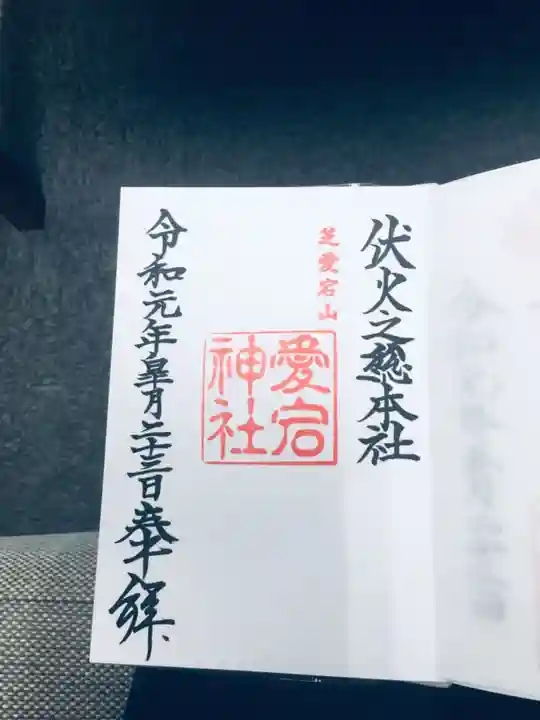 伏火之總本社
芝愛宕山
愛宕
神社
令和元年皐月二十三日奉拝